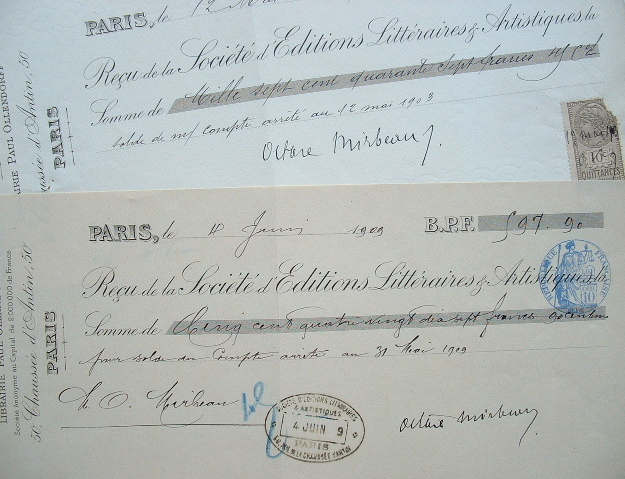 PARIS, le 12 M
Reçu de la Société d'Editions Littéraires & Artistiques, la
Somme de Mille sept cent quarante sept francs
solde de compte arrêté au 12 mai 1903
Octave Mirbeau
10c
QUITTANCES
LIBRAIRIE PAUL OLLENDORFF
Chaussée d'Antin, 50
PARIS
PARIS, le 4 Juin 1909 B.P.F. 597.90
Reçu de la Société d'Editions Littéraires & Artistiques, la
Somme de Cinq cent quatre vingt dix sept francs 90 centimes
pour solde du Compte arrêté au 31 Mai 1909
M. O. Mirbeau
Octave Mirbeau
REPUBLIQUE FRANÇAISE
10
SOCIÉTÉ D'EDITIONS LITTÉRAIRES
& ARTISTIQUES
4 JUIN 9
PARIS
CHAUSSÉE D'ANTIN
LIBRAIRIE PAUL
Société Anonyme au Capital de 2.000.000 de Francs
50, Chaussée d'Antin, 50
PARIS